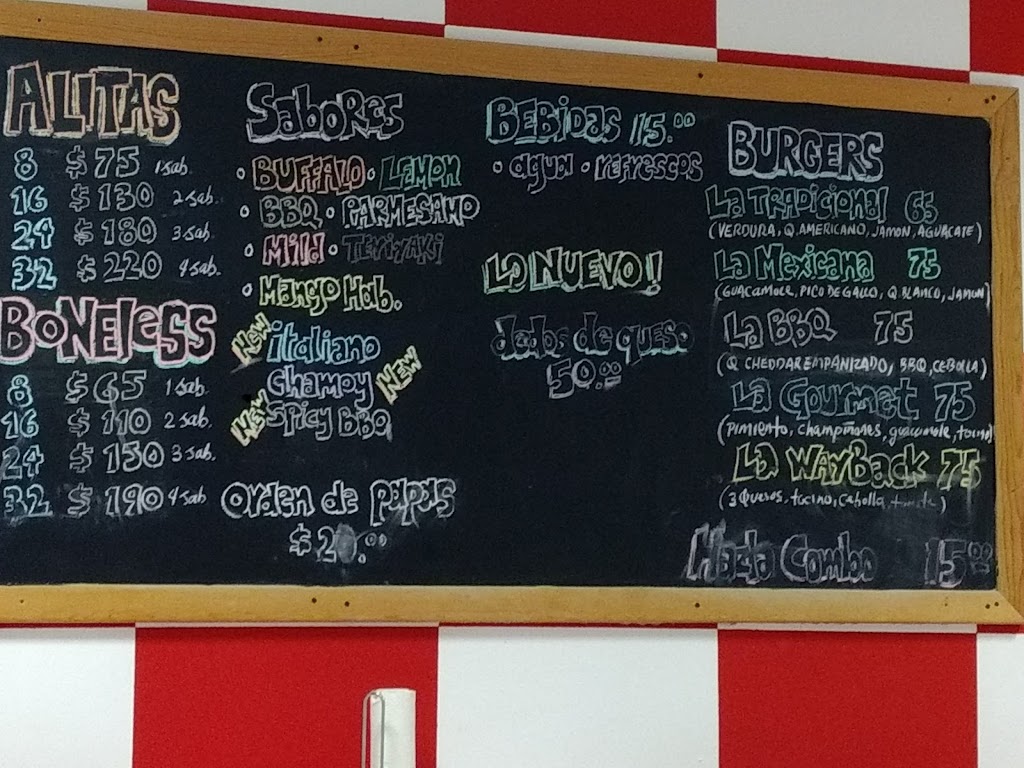 ALITAS
8 $75 1sab.
16 $130 2sab.
24 $180 3sab.
32 $220 4sab.
BONELESS
8 $65 1sab.
16 $110 2sab.
24 $150 3sab.
32 $190 4sab
SABORES
• BUFFALO • LEMON
• BBQ • PARMESANO
• Mild • TERIYAKI
• Mango Hab.
NEW italiano
Chamoy NEW
NEW Spicy BBQ
Orden de papas
$20.00
BEBIDAS 15.00
• agua • refrescos
LO NUEVO!
dados de queso
50.00
BURGERS
La TRADICIONAL 65
(VERDURA, Q. AMERICANO, JAMON, AGUACATE)
La Mexicana 75
(GUACAMOLE, PICO DE GALLO, Q. BLANCO, JAMON)
La BBQ 75
(Q CHEDDAR EMPANIZADO, BBQ, CEBOLLA)
La Gourmet 75
(Pimiento, champiñones, guacamole, tocino)
La WAYBack 75
(3 Quesos, tocino, Cebolla, )
Hazlo Combo 15.00